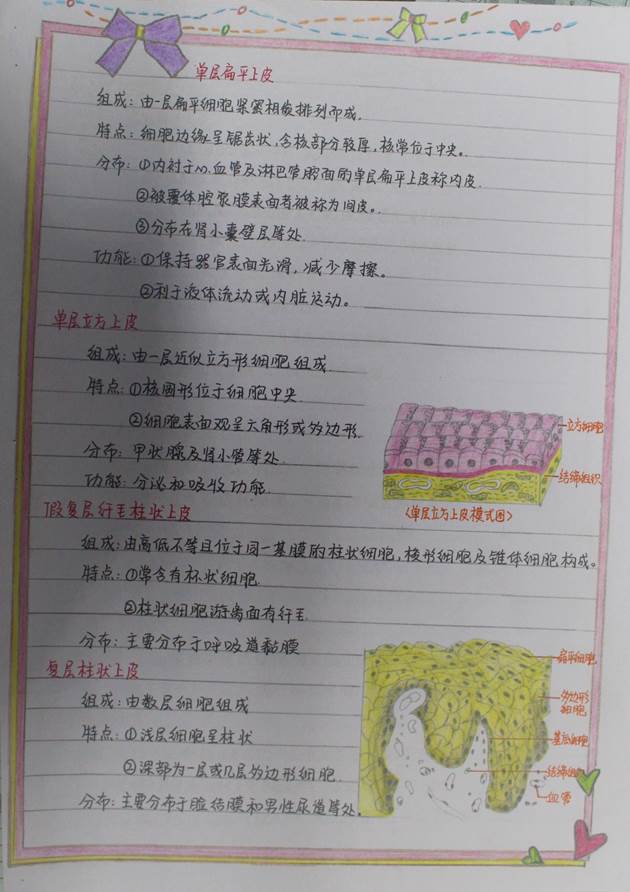 单层扁平上皮
组成：由一层扁平细胞紧密相嵌排列而成.
特点：细胞边缘呈锯齿状，含核部分较厚，核常位于中央。
分布：①内衬于心.血管及淋巴管腔面的单层扁平上皮称内皮.
②被覆体腔浆膜表面者被称为间皮。
③分布在肾小囊壁层等处.
功能：①保持器官表面光滑，减少摩擦。
②利于液体流动或内脏运动。
单层立方上皮
组成：由一层近似立方形细胞组成
特点：①核圆形位于细胞中央
②细胞表面观呈六角形或多边形.
分布：甲状腺及肾小管等处.
功能：分泌和吸收功能.
立方细胞
结缔组织
<单层立方上皮模式图>
假复层纤毛柱状上皮
组成：由高低不等且位于同一基膜的柱状细胞，梭形细胞及锥体细胞构成。
特点：①常含有杯状细胞.
②柱状细胞游离面有纤毛.
分布：主要分布于呼吸道黏膜
复层柱状上皮
组成：由数层细胞组成
特点：①浅层细胞呈柱状
②深部为一层或几层多边形细胞.
分布：主要分布于睑结膜和男性尿道等处.
扁平细胞
多边形
细胞
基底细胞
结缔组织
血管